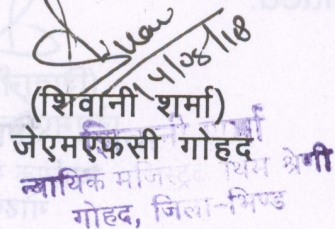 14/08/18
(शिवानी शर्मा)
जेएमएफसी गोहद
न्यायिक मजिस्ट्रेट प्रथम श्रेणी
गोहद, जिला-भिण्ड